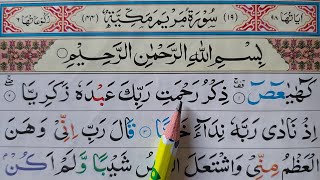 اٰیاتها ٩٨ (١٩) سُوْرَةُ مَرْيَمَ مَكِّيَّةٌ (٤٤) رکوعاتها ٦
بِسْمِ اللّٰهِ الرَّحْمٰنِ الرَّحِيْمِ
كٓهٰيٰعٓصٓ ذِكْرُ رَحْمَتِ رَبِّكَ عَبْدَهٗ زَكَرِيَّا
اِذْ نَادٰى رَبَّهٗ نِدَآءً خَفِيًّا قَالَ رَبِّ اِنِّىْ وَهَنَ
الْعَظْمُ مِنِّىْ وَاشْتَعَلَ الرَّاْسُ شَيْبًا وَّلَمْ اَكُنْۢ